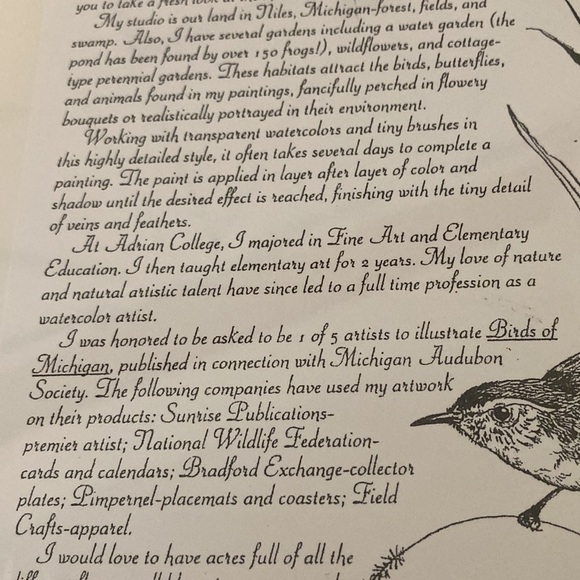 you to take a fresh look
My studio is our land in Niles, Michigan-forest, fields, and
swamp. Also, I have several gardens including a water garden (the
pond has been found by over 150 frogs!), wildflowers, and cottage-
type perennial gardens. These habitats attract the birds, butterflies,
and animals found in my paintings, fancifully perched in flowery
bouquets or realistically portrayed in their environment.
Working with transparent watercolors and tiny brushes in
this highly detailed style, it often takes several days to complete a
painting. The paint is applied in layer after layer of color and
shadow until the desired effect is reached, finishing with the tiny detail
of veins and feathers.
At Adrian College, I majored in Fine Art and Elementary
Education. I then taught elementary art for 2 years. My love of nature
and natural artistic talent have since led to a full time profession as a
watercolor artist.
I was honored to be asked to be 1 of 5 artists to illustrate Birds of
Michigan, published in connection with Michigan Audubon
Society. The following companies have used my artwork
on their products: Sunrise Publications-
premier artist; National Wildlife Federation-
cards and calendars; Bradford Exchange-collector
plates; Pimpernel-placemats and coasters; Field
Crafts-apparel.
I would love to have acres full of all the